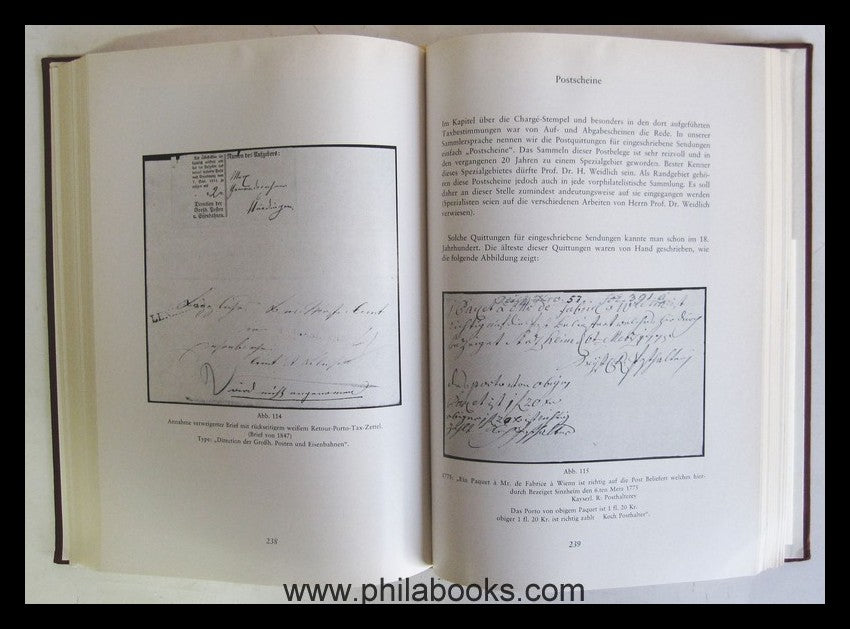 Namen des Aufgebers:
Direction der
Großh. Posten
u. Eisenbahnen.
Wird nicht angenommen
Abb. 114
Annahme verweigerter Brief mit rückseitigem weißem Retour-Porto-Tax-Zettel.
(Brief von 1847)
Type: „Direction der Großh. Posten und Eisenbahnen“.
238
Postscheine
Im Kapitel über die Chargé-Stempel und besonders in den dort aufgeführten
Taxbestimmungen war von Auf- und Abgabescheinen die Rede. In unserer
Sammlersprache nennen wir die Postquittungen für eingeschriebene Sendungen
einfach „Postscheine“. Das Sammeln dieser Postbelege ist sehr reizvoll und in
den vergangenen 20 Jahren zu einem Spezialgebiet geworden. Bester Kenner
dieses Spezialgebietes dürfte Prof. Dr. H. Weidlich sein. Als Randgebiet gehö-
ren diese Postscheine jedoch auch in jede vorphilatelistische Sammlung. Es soll
daher an dieser Stelle zumindest andeutungsweise auf sie eingegangen werden
(Spezialisten seien auf die verschiedenen Arbeiten von Herrn Prof. Dr. Weidlich
verwiesen).
Solche Quittungen für eingeschriebene Sendungen kannte man schon im 18.
Jahrhundert. Die älteste dieser Quittungen waren von Hand geschrieben, wie
die folgende Abbildung zeigt:
Abb. 115
1775: „Ein Paquet à Mr. de Fabrice à Wienn ist richtig auf die Post Beliefert welches hier-
durch Bezeiget Sinzheim den 6.ten Metz 1775
Kayserl. R. Posthalterey
Das Porto von obigem Paquet ist 1 fl. 20 Kr.
obiger 1 fl. 20 Kr. ist richtig zahlt Koch Posthalter“.
239
www.philabooks.com